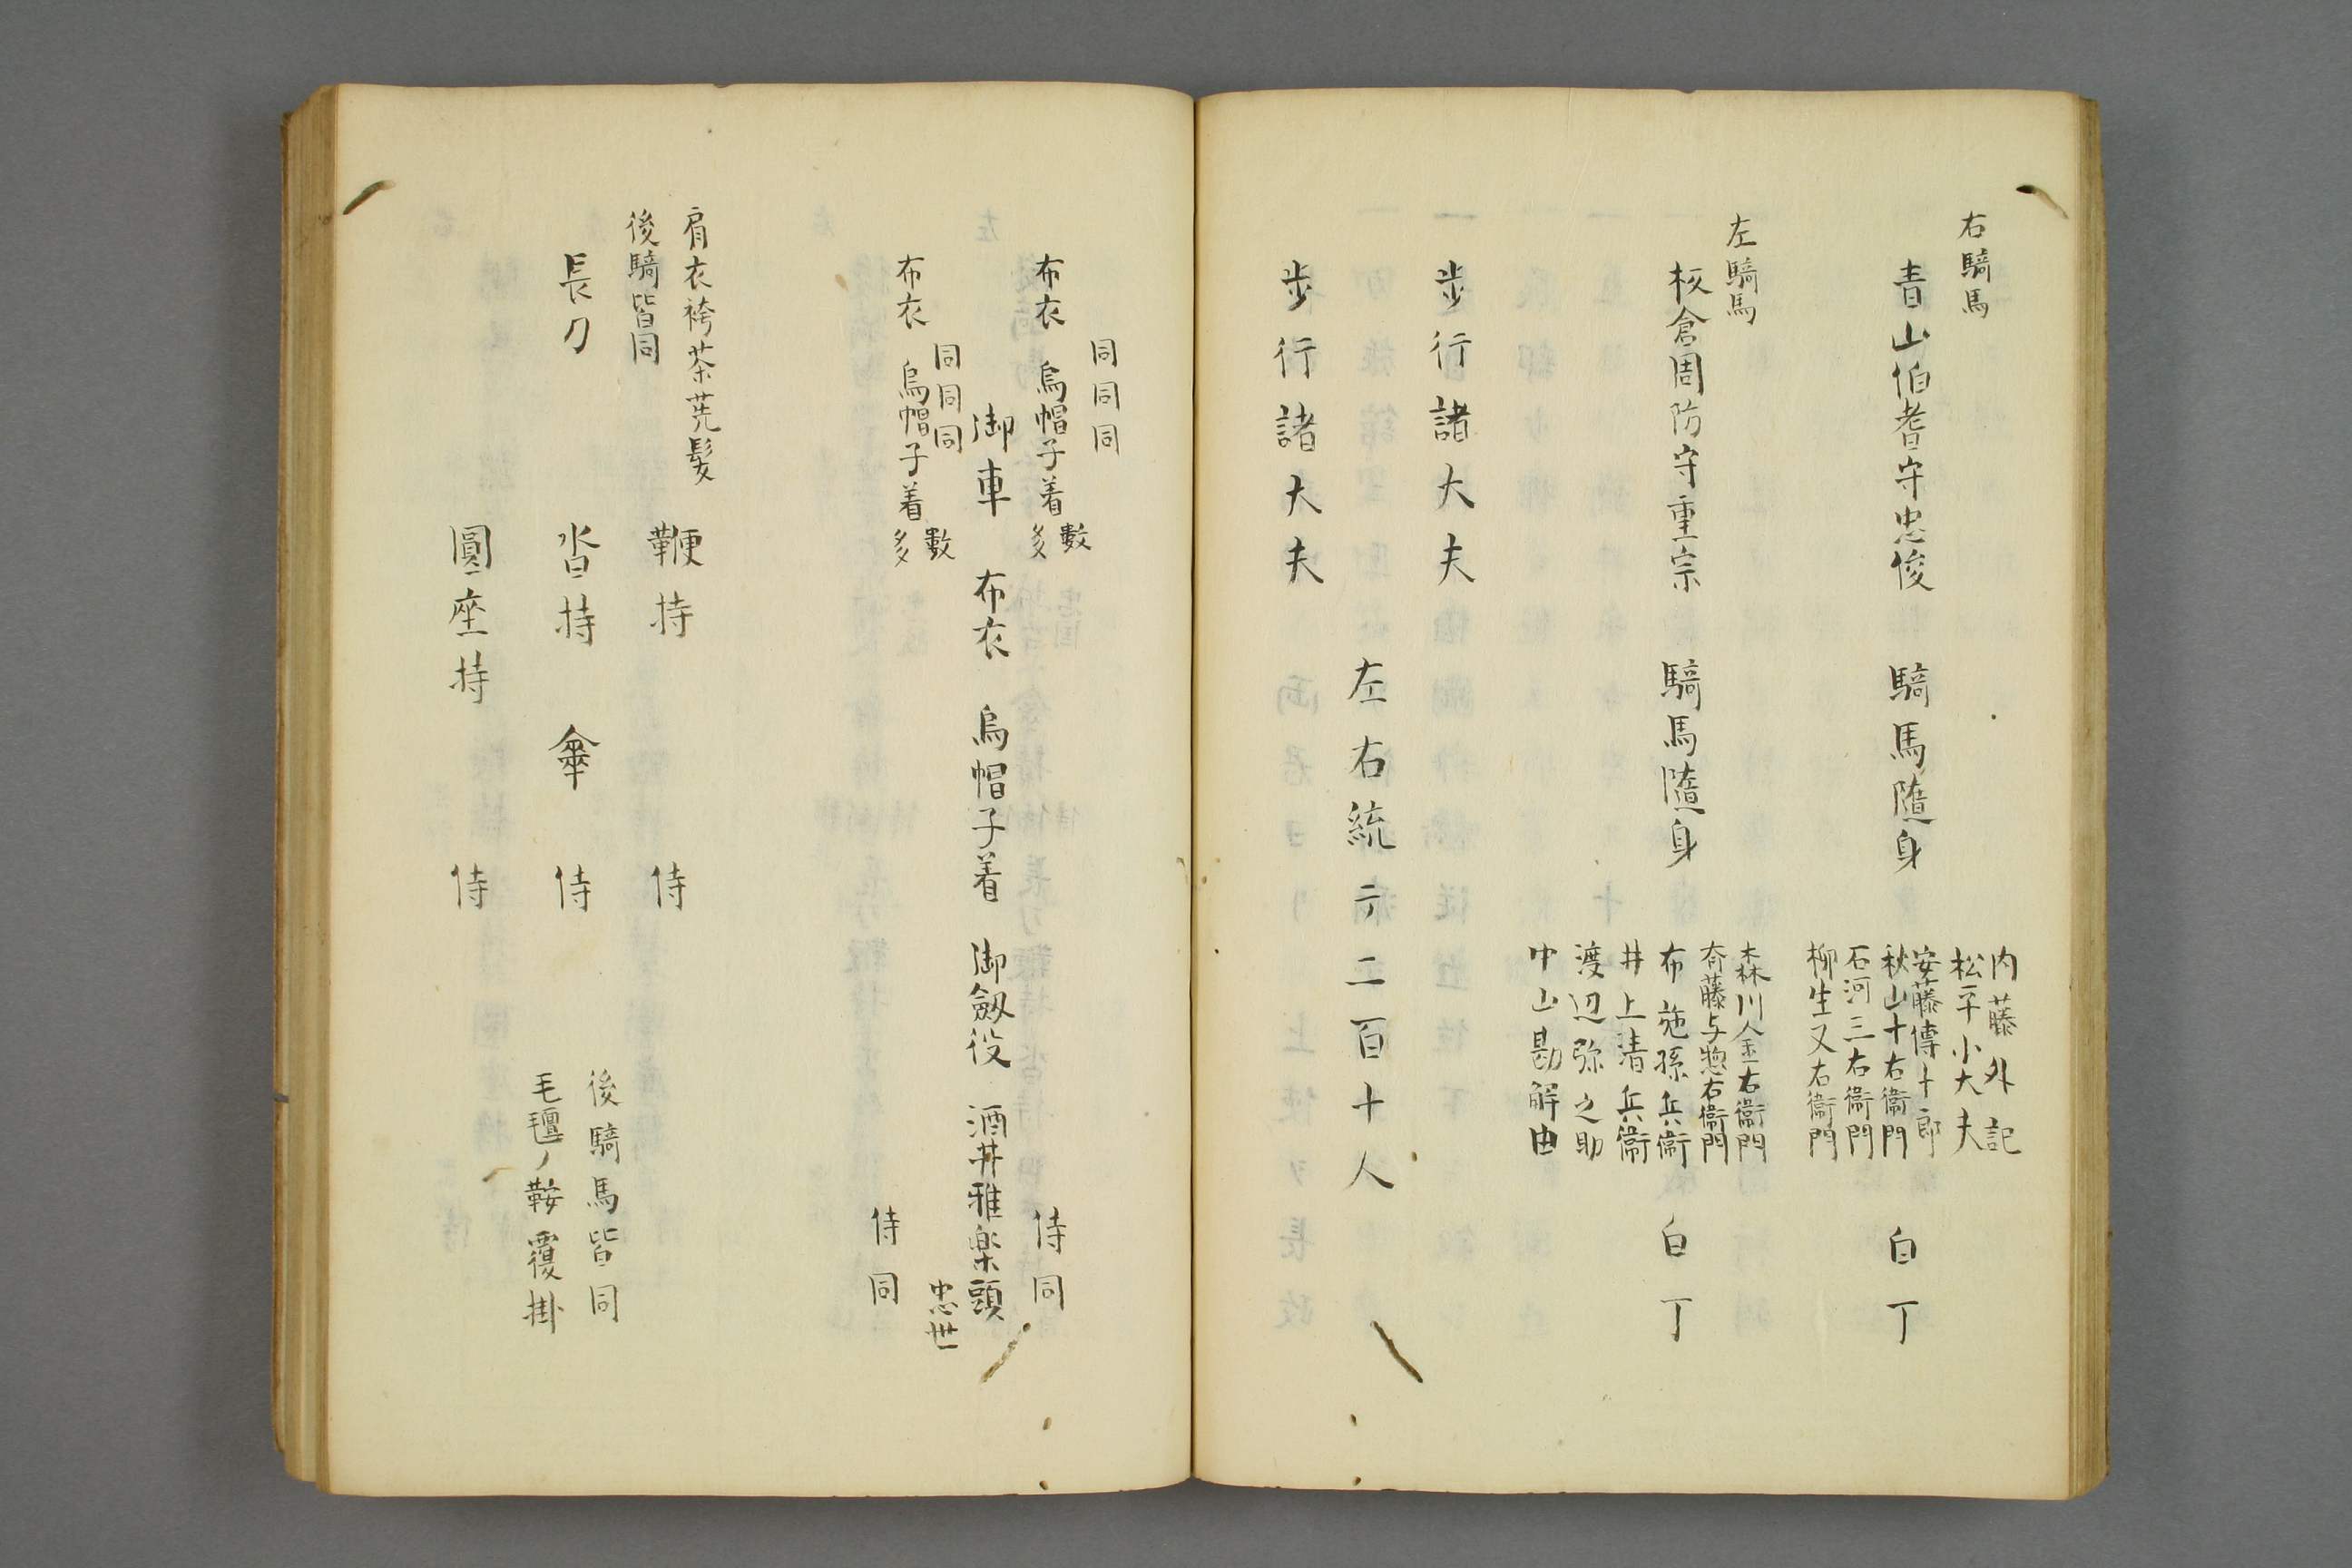 右騎馬
青山伯耆守忠俊　騎馬隨身
内藤外記
松平小大夫
安藤傳十郎
秋山十右衛門
石河三右衛門
柳生又右衛門
白丁
左騎馬
板倉周防守重宗　騎馬隨身
森川金右衛門
斉藤与惣右衛門
布施孫兵衛
井上清兵衛
渡辺弥之助
中山勘解由
白丁
歩行諸大夫
左右統テ二百十人
歩行諸大夫
同同同
布衣　烏帽子着　數多　侍同
御車　布衣　烏帽子着　御劔役　酒井雅楽頭忠世
同同同
布衣　烏帽子着　數多　侍同
肩衣袴茶筅髪
後騎皆同
鞭持　侍
長刀　沓持　傘　侍
後騎馬皆同
毛氊ノ鞍覆掛
圓座持　侍